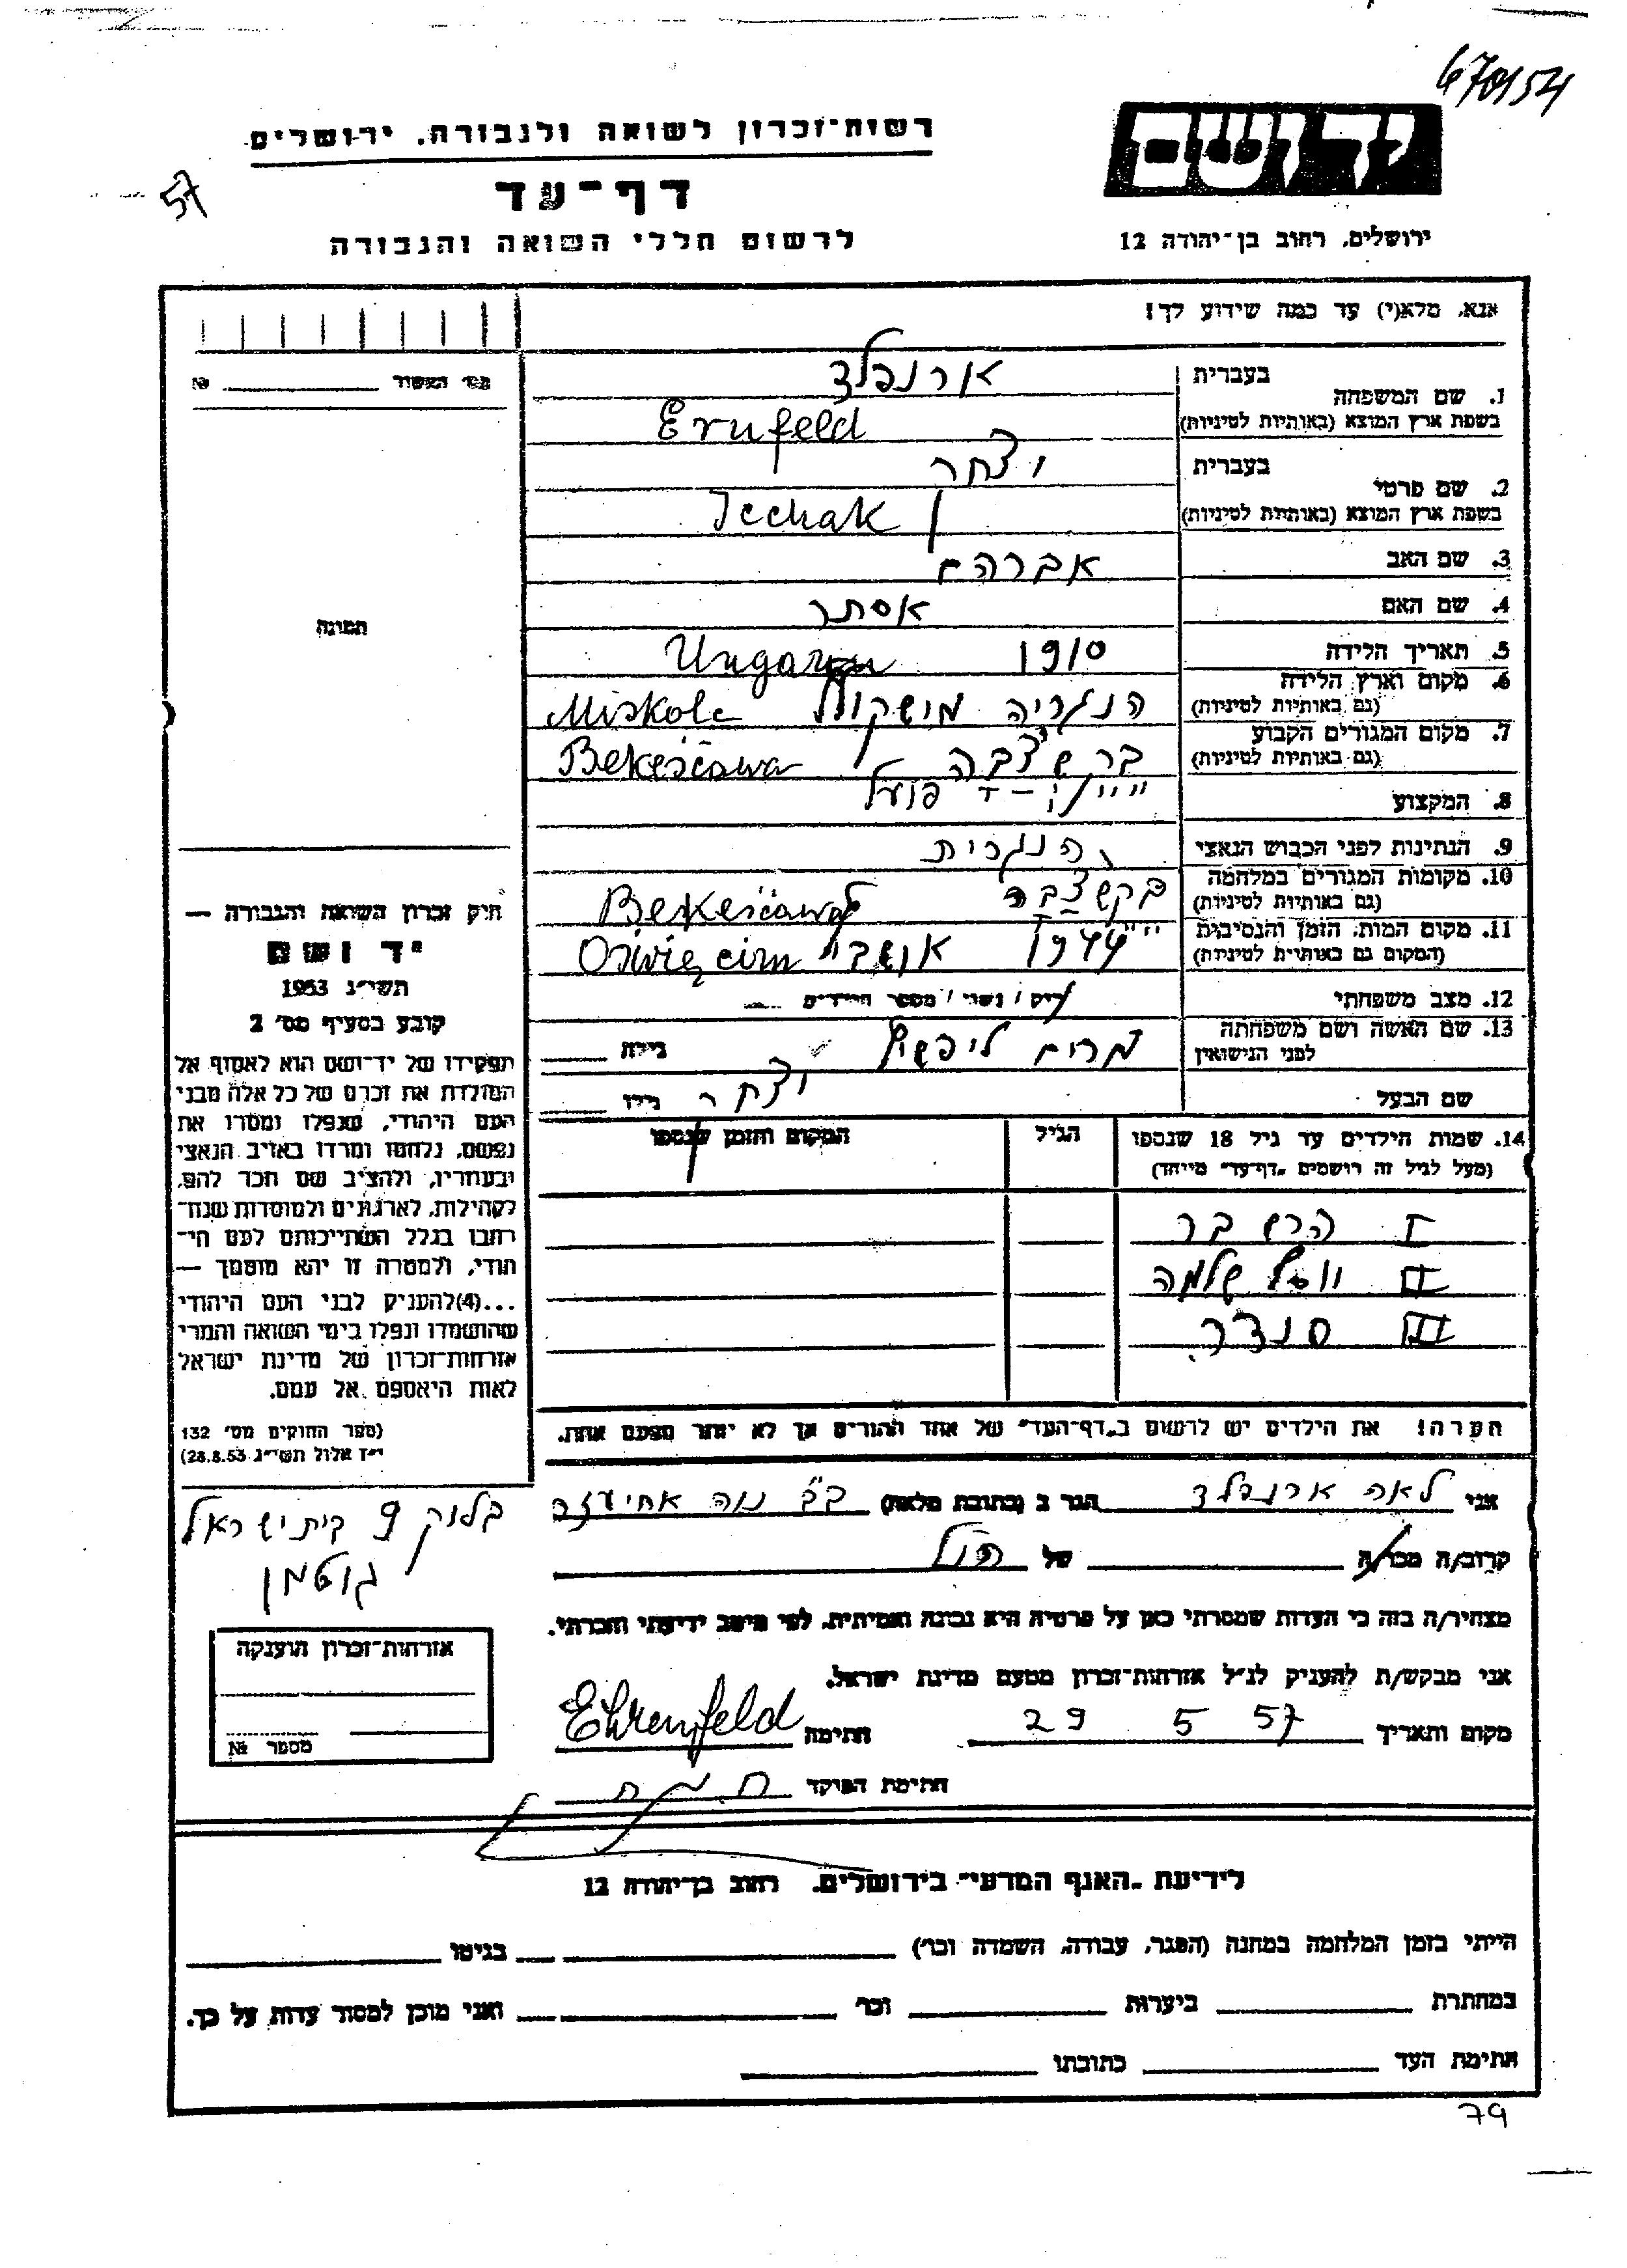 670154
רשות-זכרון לשואה ולגבורה, ירושלים
יד ושם
57
דף-עד
לרשום חללי השואה והגבורה
ירושלים, רחוב בן-יהודה 12
אנא, מלא(י) עד כמה שידוע לך!
מס' האשור № 
1. שם המשפחה בעברית ארנפלד
בשפת ארץ המוצא (באותיות לטיניות) Ernfeld
2. שם פרטי בעברית יצחק
בשפת ארץ המוצא (באותיות לטיניות) Icchak
3. שם האב אברהם
4. שם האם אסתר
תמונה
5. תאריך הלידה 1910 Ungarn
6. מקום וארץ הלידה הנגריה מישקולץ Miskolc
(גם באותיות לטיניות)
7. מקום המגורים הקבוע בקשצבה Bekeščawa
(גם באותיות לטיניות)
8. המקצוע פועל
9. הנתינות לפני הכבוש הנאצי הנגרית
10. מקומות המגורים במלחמה בקשצבה Bekeščawa
(גם באותיות לטיניות)
11. מקום המות, הזמן והנסיבות 1944 אושבי Oświęcim
(המקום גם באותיות לטיניות)
12. מצב משפחתי רוק / נשוי / מספר הילדים
13. שם האשה ושם משפחתה מרים ליפשיץ גילה
לפני הנישואין
שם הבעל יצחק גילו
14. שמות הילדים עד גיל 18 שנספו הגיל המקום והזמן שנספו
(מעל לגיל זה רושמים "דף-עד" מיוחד)
I הרש בר
II שלמה
III סנדר
הערה! את הילדים יש לרשום ב"דף-העד" של אחד ההורים אך לא יותר מפעם אחת.
חוק זכרון השואה והגבורה —
יד ושם
תשי"ג 1953
קובע בסעיף מס' 2
תפקידו של יד-ושם הוא לאסוף אל
המולדת את זכרם של כל אלה מבני
העם היהודי, שנפלו ומסרו את
נפשם, נלחמו ומרדו באויב הנאצי
ובעוזריו, ולהציב שם וזכר להם,
לקהילות, לארגונים ולמוסדות שנח-
רבו בגלל השתייכותם לעם היהו-
הודי, ולמטרה זו יהא מוסמך —
...(4)להעניק לבני העם היהודי
שהושמדו ונפלו בימי השואה והמרי
אזרחות-זכרון של מדינת ישראל
לאות היאספם אל עמם.
(ספר החוקים מס' 132
י"ז אלול תשי"ג 28.8.53)
אני לאה ארנפלד הגר ב (כתובת מלאה) ב"ב נוה אחיעזר
בלוק 9 בית ישראל
גוטמן
קרוב/ה מכר/ה של הנ"ל
מצהיר/ה בזה כי העדות שמסרתי כאן על פרטיה היא נכונה ואמיתית, לפי מיטב ידיעתי והכרתי.
אני מבקש/ת להעניק לנ"ל אזרחות-זכרון מטעם מדינת ישראל.
מקום ותאריך 29 5 57 חתימה Ehrenfeld
חתימת הפוקד
אזרחות-זכרון הוענקה
מספר №
לידיעת "האגף המדעי" בירושלים, רחוב בן-יהודה 12
הייתי בזמן המלחמה במחנה (הסגר, עבודה, השמדה וכו') בגיטו
במחתרת ביערות וכו' ואני מוכן למסור עדות על כך.
חתימת העד כתובתו
79